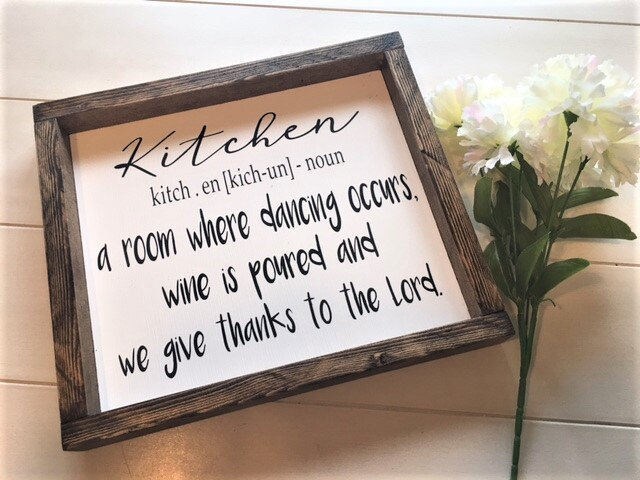 Kitchen
kitch . en [kich-un] - noun
a room where dancing occurs,
wine is poured and
we give thanks to the Lord.